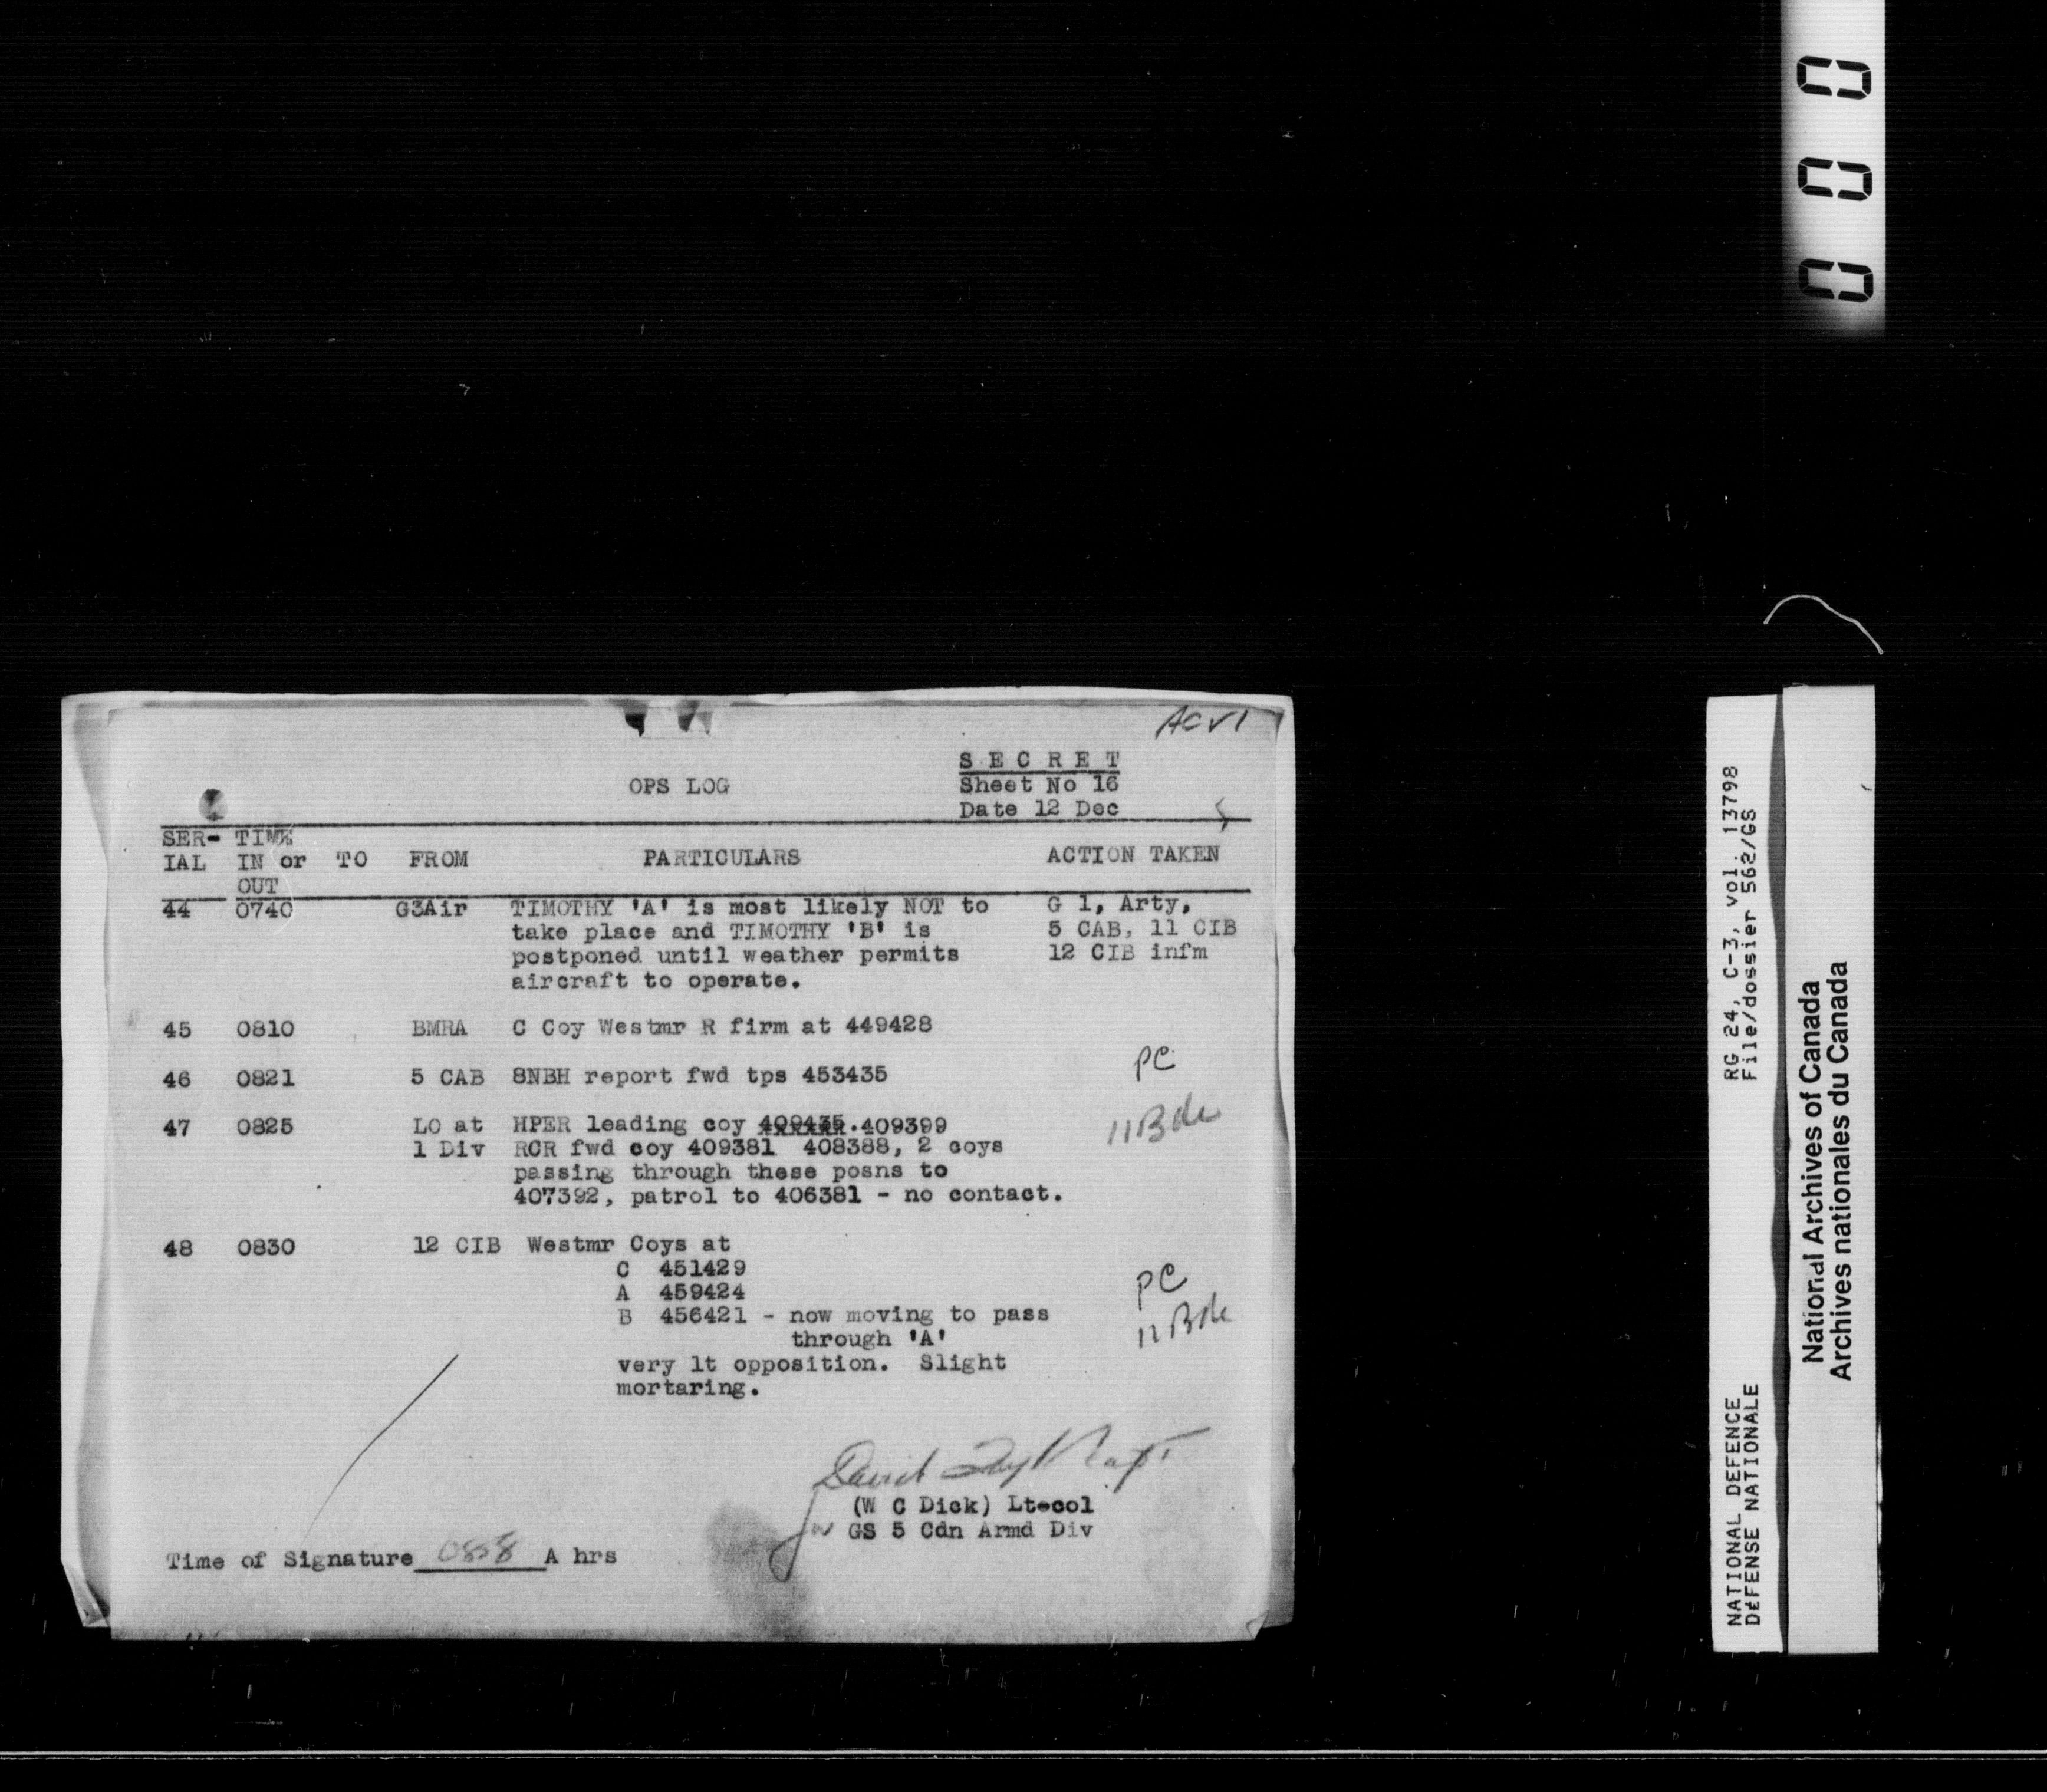 000
ACV1
S E C R E T
OPS LOG
Sheet No 16
Date 12 Dec
SER- TIME
IAL IN or TO FROM PARTICULARS ACTION TAKEN
OUT
44 0740 G3Air TIMOTHY 'A' is most likely NOT to G 1, Arty,
take place and TIMOTHY 'B' is 5 CAB, 11 CIB
postponed until weather permits 12 CIB infm
aircraft to operate.
45 0810 BMRA C Coy Westmr R firm at 449428
46 0821 5 CAB 8NBH report fwd tps 453435 PC
47 0825 LO at HPER leading coy 409435.409399 11 Bde
1 Div RCR fwd coy 409381 408388, 2 coys
passing through these posns to
407392, patrol to 406381 - no contact.
48 0830 12 CIB Westmr Coys at
C 451429
A 459424 PC
B 456421 - now moving to pass 11 Bde
through 'A'
very lt opposition. Slight
mortaring.
David Capt
(W C Dick) Lt-col
GS 5 Cdn Armd Div
Time of Signature 0858 A hrs
RG 24, C-3, vol. 13798
File/dossier 562/GS
NATIONAL DEFENCE
DEFENSE NATIONALE
National Archives of Canada
Archives nationales du Canada